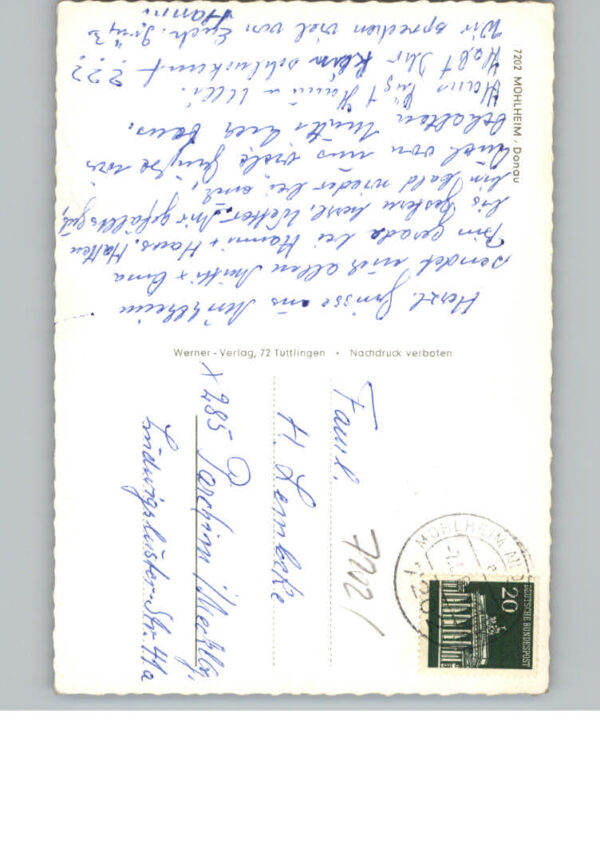 7202 MÜHLHEIM / Donau
Herzl. Grüsse aus Mühlheim
sendet euch allen Mutti + Oma
Bin gerade bei Hanni + Haus. Hatten
bis gestern herrl. Wetter. Mir gefällts gut,
bin bald wieder bei euch,
viel von uns viele Grüße wir
behalten Mutti hier
Hans Hanni u Ulli.
Habt Ihr Kein ???
Wir sprechen viel von Euch. Gruß
Hanni
Werner-Verlag, 72 Tuttlingen • Nachdruck verboten
Famil.
H. Lembcke
X 285 Parchim/Mecklbg.
Ludwigsluster-Str. 41a
7202/
MÜHLHEIM
20
DEUTSCHE BUNDESPOST